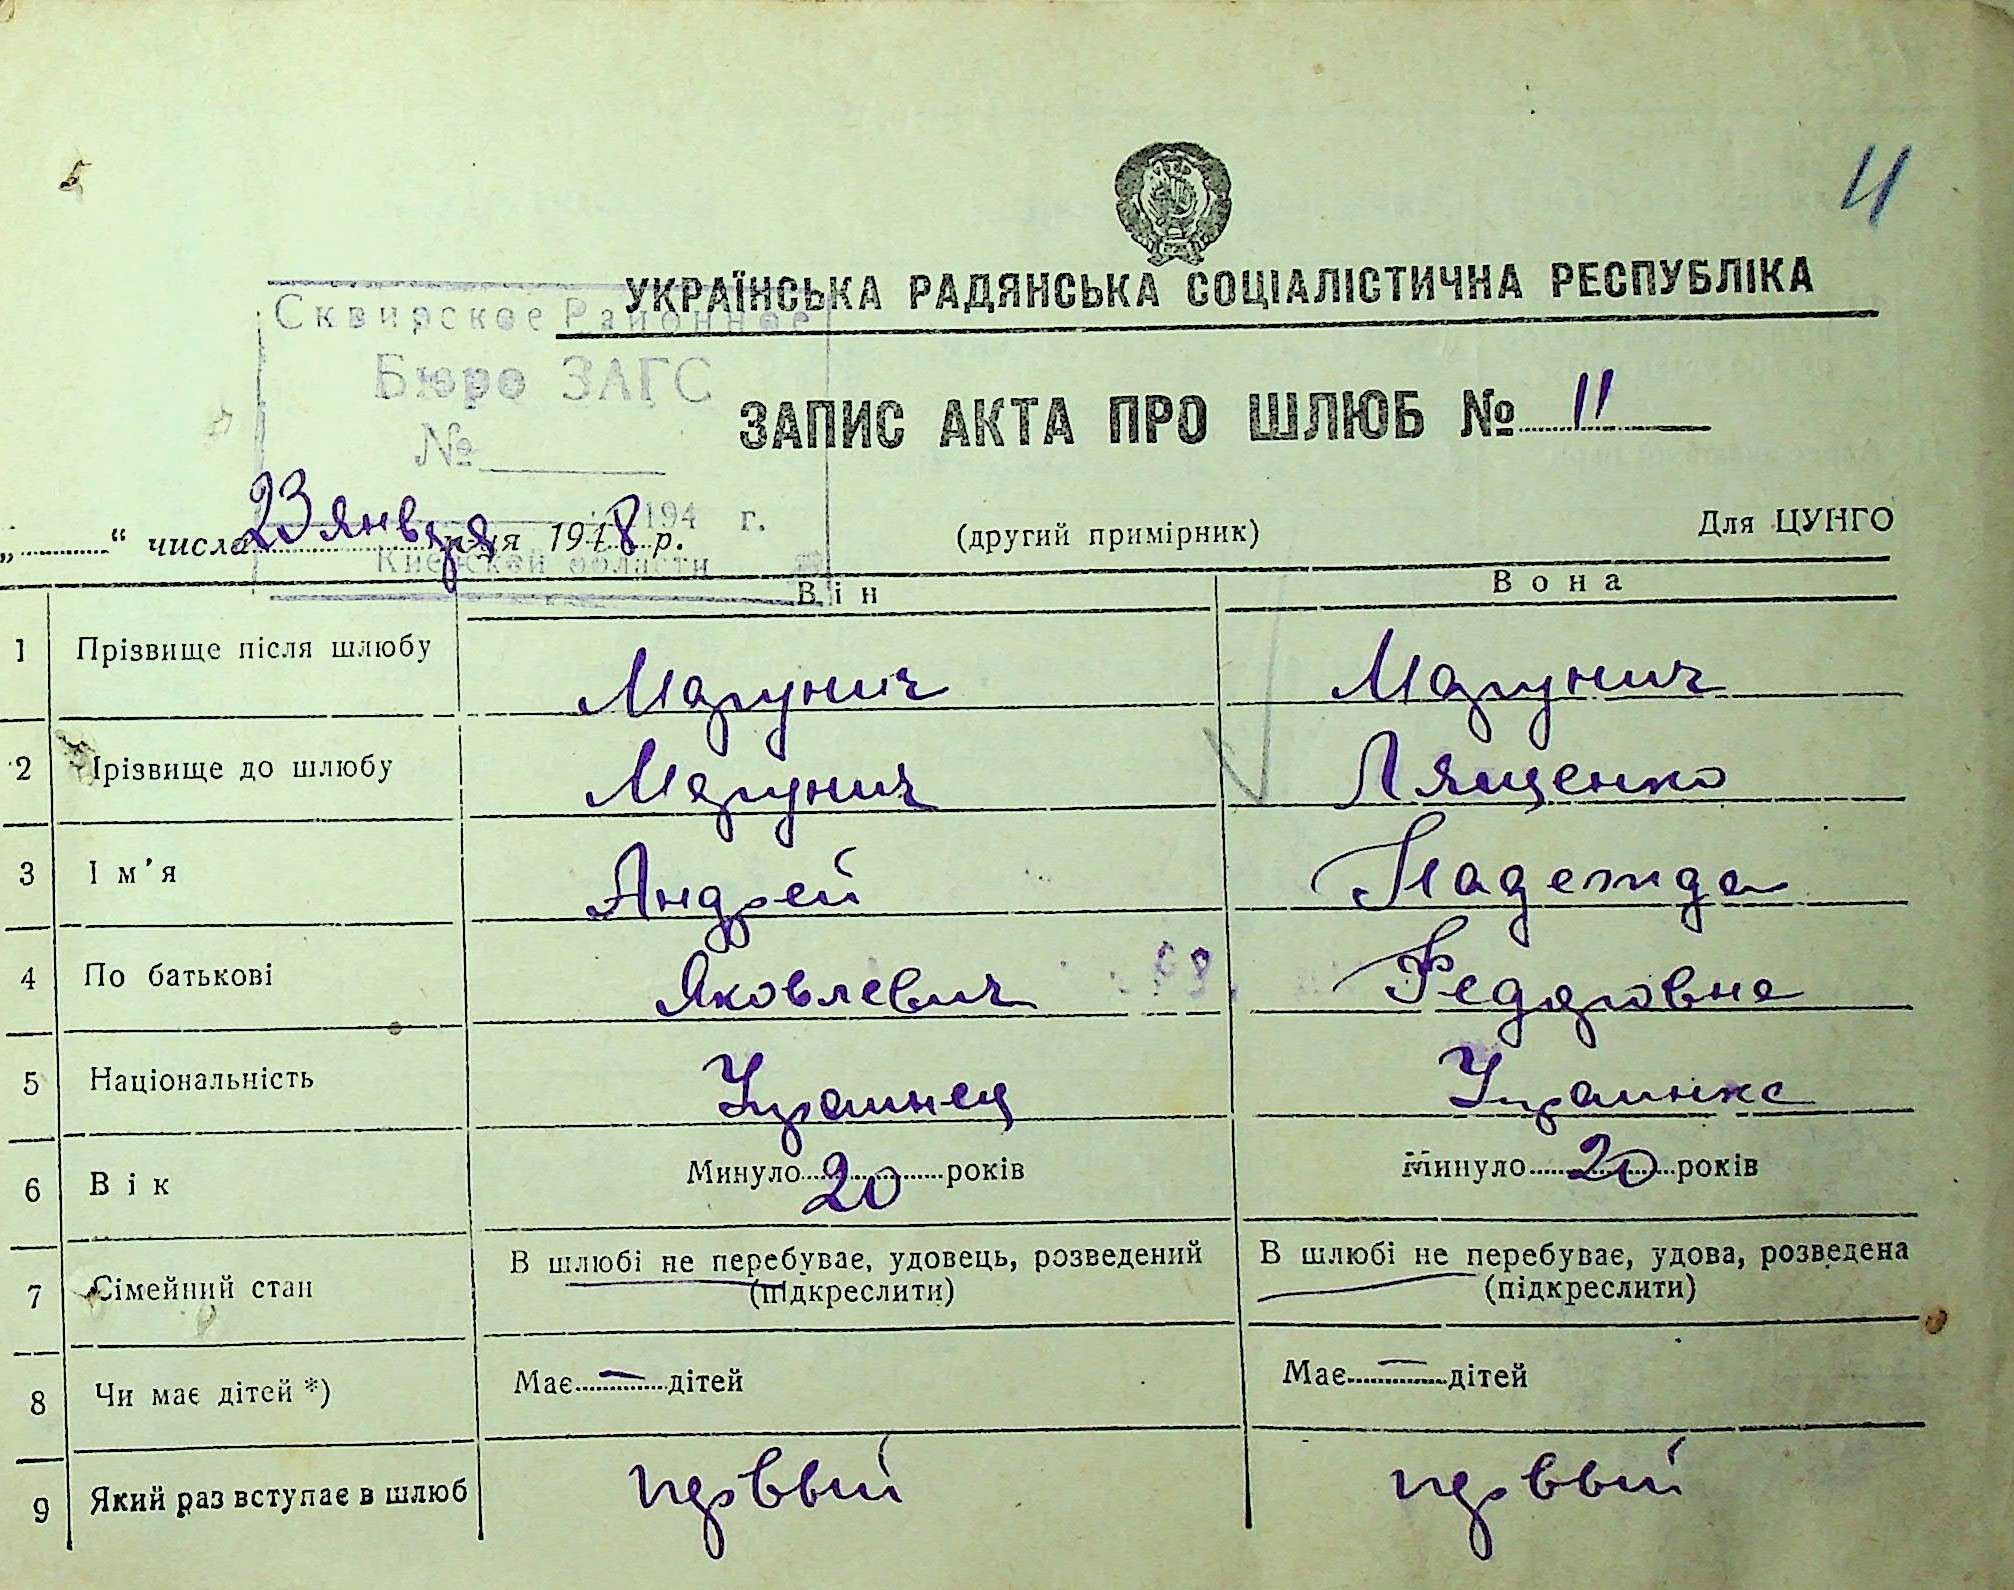 11
УКРАЇНСЬКА РАДЯНСЬКА СОЦІАЛІСТИЧНА РЕСПУБЛІКА
Сквирское Районное
Бюро ЗАГС
№
194 г.
Киевской области
ЗАПИС АКТА ПРО ШЛЮБ № 11
„ “ числа 23 января 1948 р.
(другий примірник)
Для ЦУНГО
Він Вона
1 Прізвище після шлюбу Маргунич Маргунич
2 Прізвище до шлюбу Маргунич Лященко
3 Ім'я Андрей Надежда
4 По батькові Яковлевич Федоровна
5 Національність Украинец Украинка
6 Вік Минуло 20 років Минуло 20 років
7 Сімейний стан В шлюбі не перебуває, удовець, розведений (підкреслити) В шлюбі не перебуває, удова, розведена (підкреслити)
8 Чи має дітей *) Має — дітей Має — дітей
9 Який раз вступає в шлюб первый первый